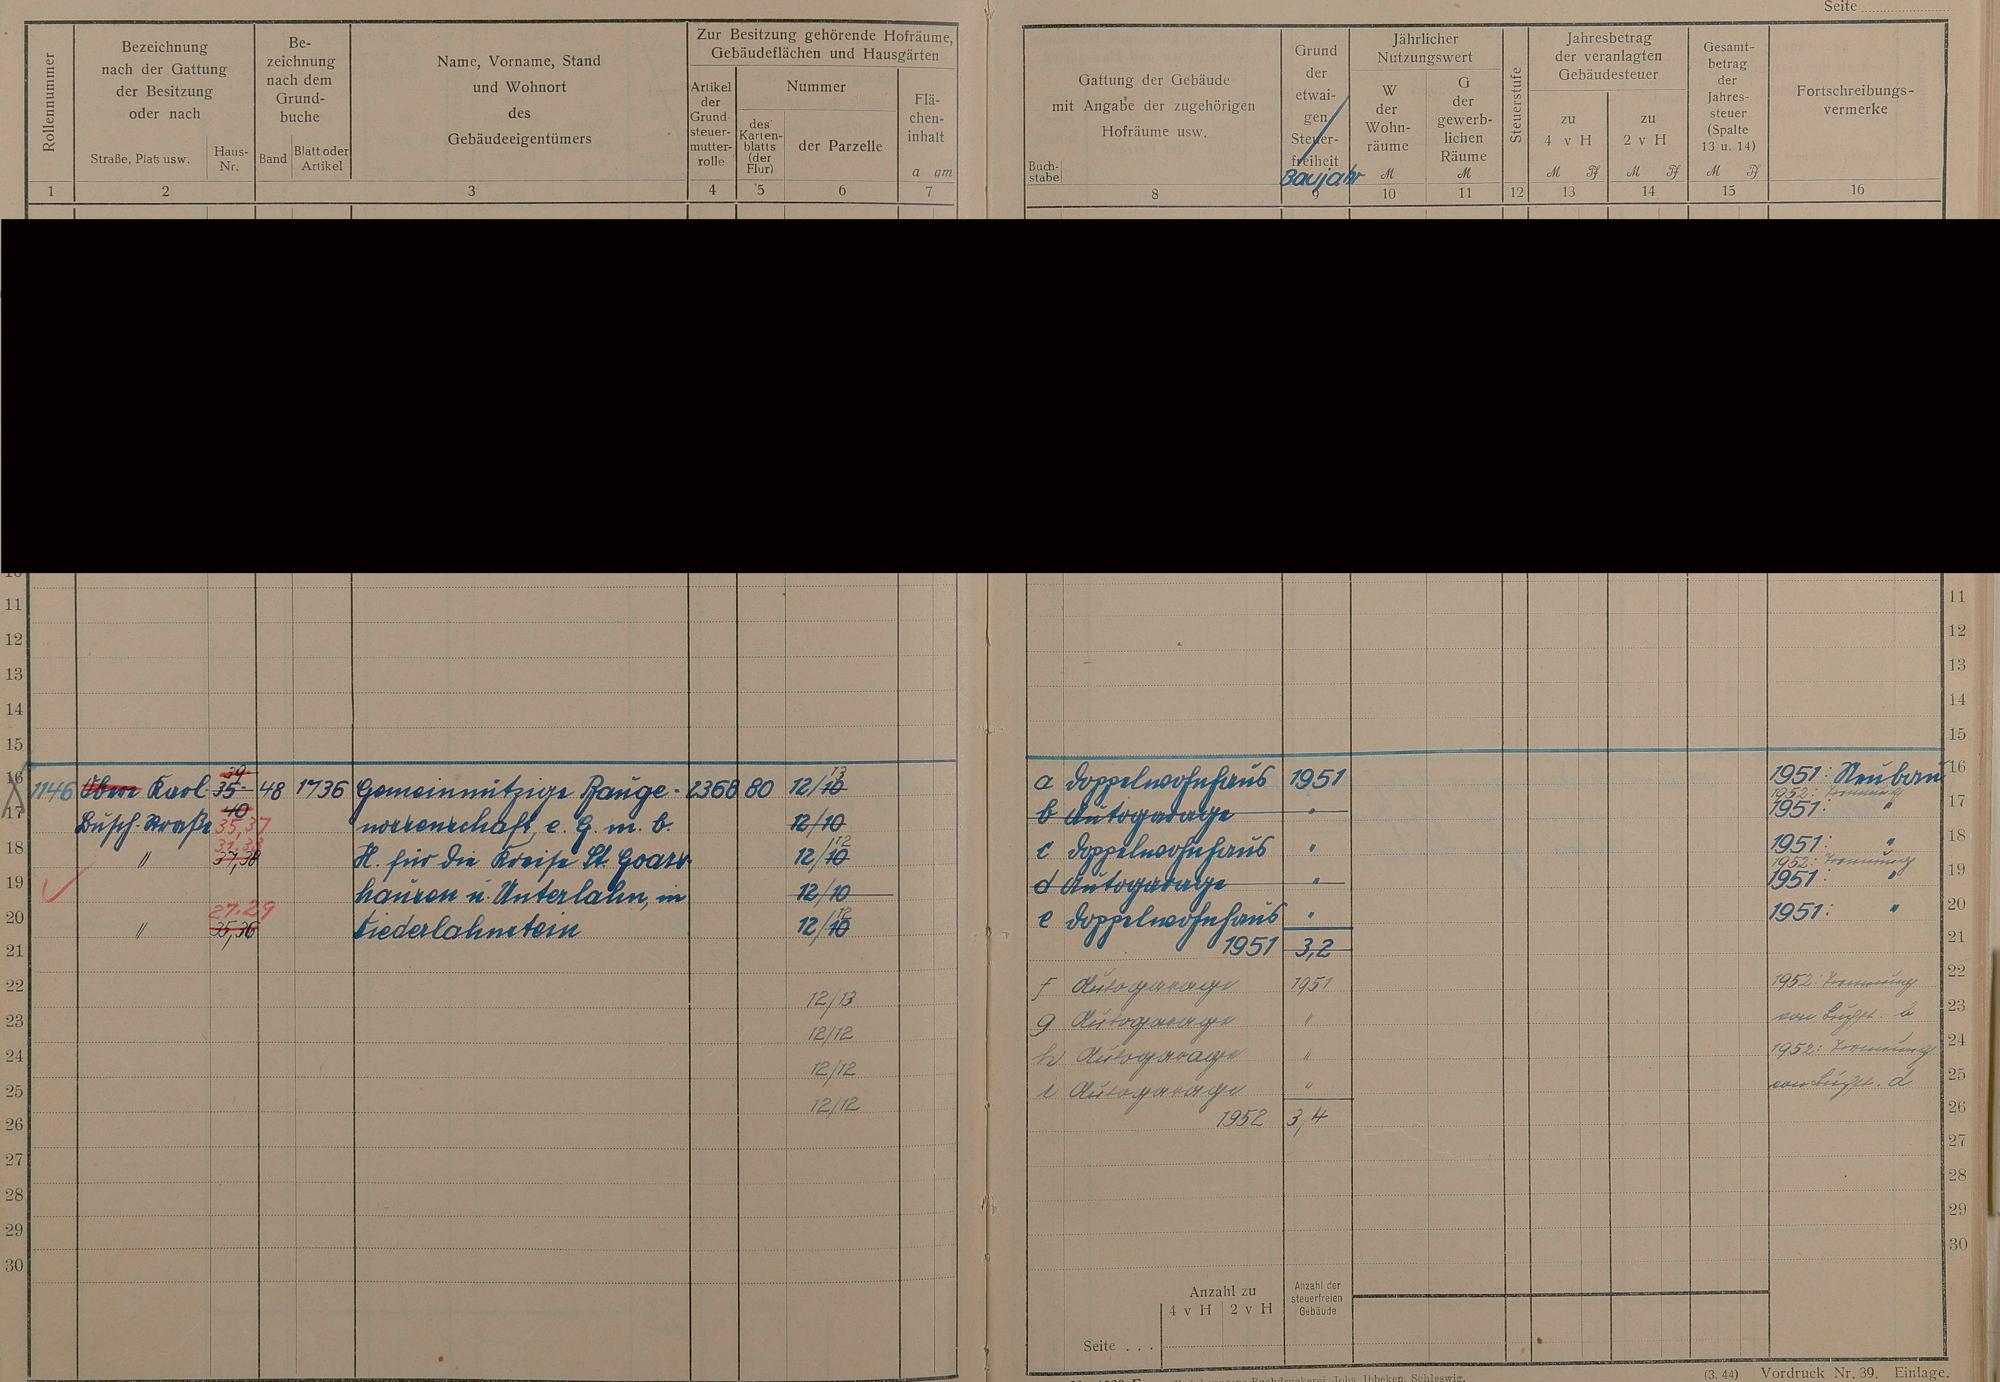 Seite
Rollennummer
Bezeichnung
nach der Gattung
der Besitzung
oder nach
Straße, Platz usw.
Haus-
Nr.
Be-
zeichnung
nach dem
Grund-
buche
Band
Blatt oder
Artikel
Name, Vorname, Stand
und Wohnort
des
Gebäudeeigentümers
Zur Besitzung gehörende Hofräume,
Gebäudeflächen und Hausgärten
Artikel
der
Grund-
steuer-
mutter-
rolle
Nummer
des
Karten-
blatts
(der
Flur)
der Parzelle
Flä-
chen-
inhalt
a qm
1 2 3 4 5 6 7
Gattung der Gebäude
mit Angabe der zugehörigen
Hofräume usw.
Buch-
stabe
Grund
der
etwai-
gen
Steuer-
freiheit
Baujahr
Jährlicher
Nutzungswert
W
der
Wohn-
räume
M
G
der
gewerb-
lichen
Räume
M
Steuerstufe
Jahresbetrag
der veranlagten
Gebäudesteuer
zu
4 v H
M Pf
zu
2 v H
M Pf
Gesamt-
betrag
der
Jahres-
steuer
(Spalte
13 u. 14)
M Pf
Fortschreibungs-
vermerke
8 9 10 11 12 13 14 15 16
11 11
12 12
13 13
14 14
15 15
39 13
16 1146 Obere Karl- 35- 48 1736 Gemeinnützige Bauge- 2368 80 12/10 a Doppelwohnhaus 1951 1951: Neubau 16
40 1952: Trennung
17 Busch-Straße 35,37 nossenschaft, e. G. m. b. 12/10 b Autogarage " 1951: " 17
31,33 12
18 " 37,38 H. für die Kreise St. Goars- 12/10 c Doppelwohnhaus " 1951: " 18
1952: Trennung
19 hausen u. Unterlahn, in 12/10 d Autogarage " 1951: " 19
27.29 12
20 " 35,36 Niederlahnstein 12/10 e Doppelwohnhaus " 1951: " 20
21 1951 3,2 21
22 12/13 f Autogarage 1951 1952: Trennung 22
23 12/12 g Autogarage " von Buchst. b 23
24 12/12 h Autogarage " 1952: Trennung 24
25 12/12 i Autogarage " von Buchst. d 25
26 1952 3,4 26
27 27
28 28
29 29
30 30
Anzahl zu
4 v H 2 v H
Anzahl der
steuerfreien
Gebäude
Seite . . .
Buchdruckerei Johs. Ibbeken, Schleswig.
(3. 44) Vordruck Nr. 39. Einlage.